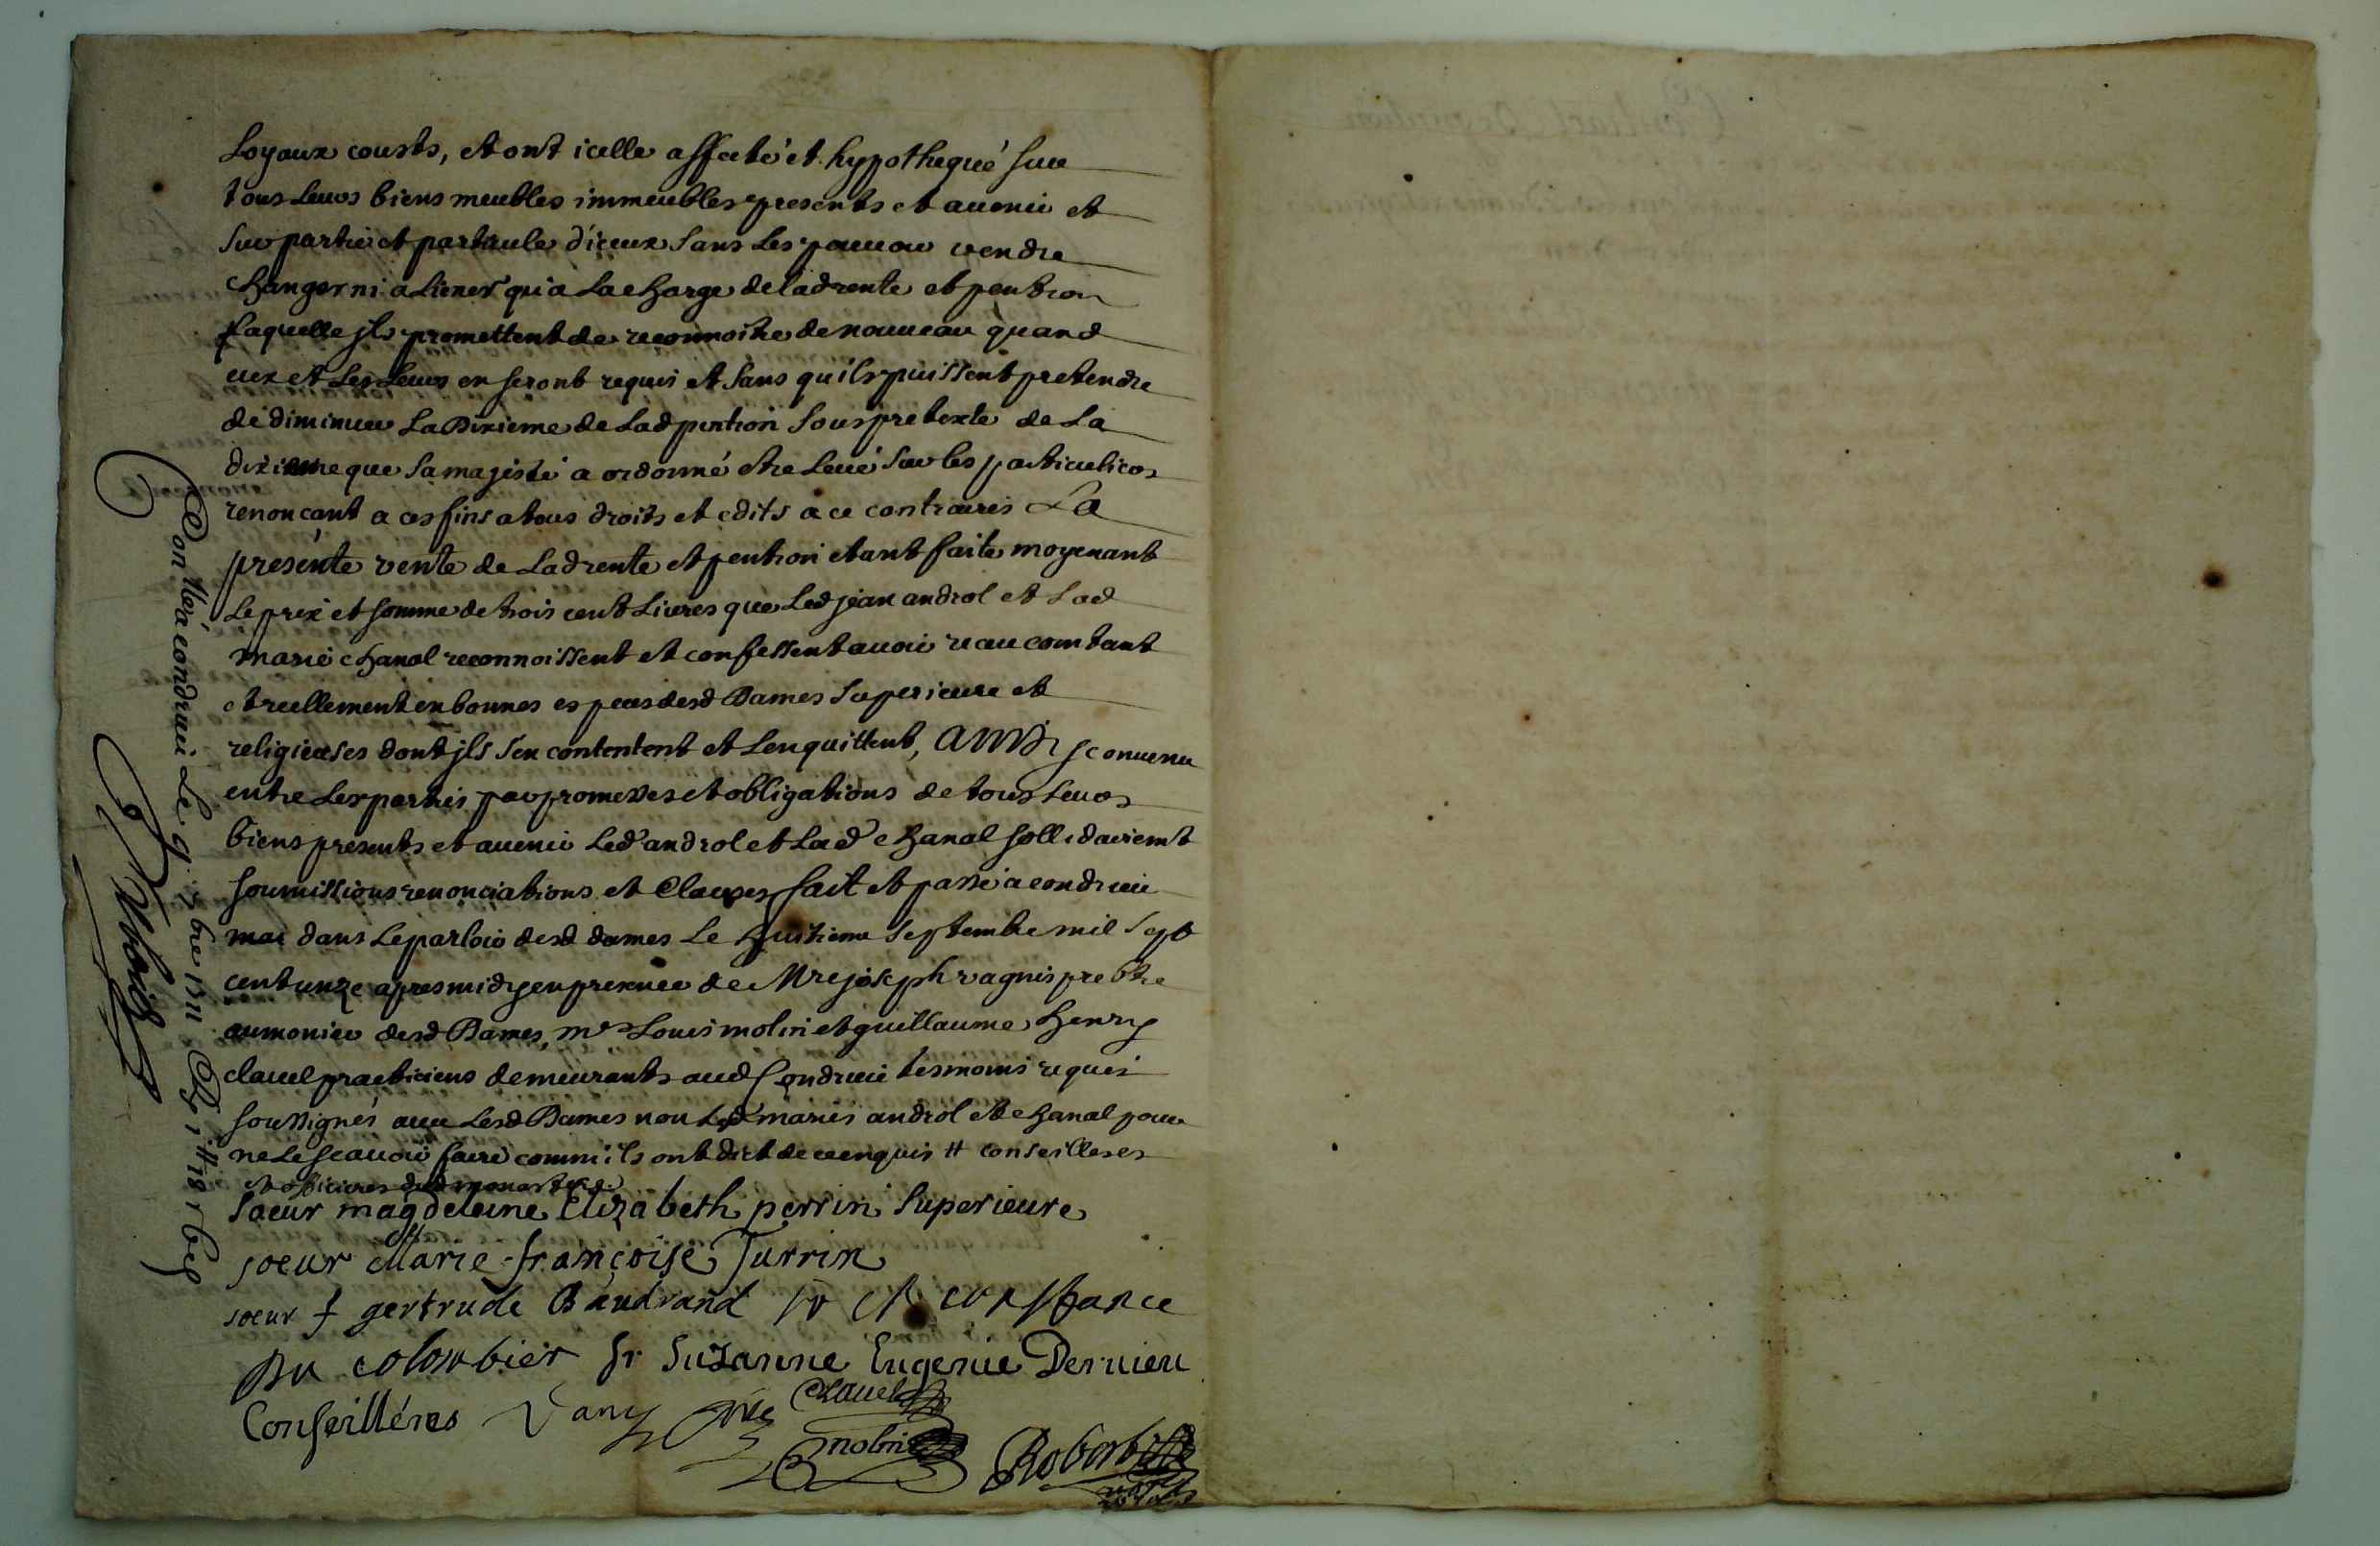 Loyaux cousts, et ont icelle affecté et hypothequé sur
tous leurs biens meubles immeubles presents et avenir et
sur partie et particule d'iceux sans les pouuoir vendre
changer ni aliener qu'a la charge de lad rente et pention
laquelle jls promettent de reconnoitre de nouueau quand
eux et les leurs en seront requis et sans qu'ils puissent pretendre
de diminuer La Dixieme de lad pention sous pretexte de La
dixieme que sa majesté a ordonné etre leué sur les particuliers
renonçant a ces fins a tous droits et edits a ce contraires La
presente vente de Lad rente et pention etant faite moyenant
Le prix et somme de trois cent Liures que Led jean androl et Lad
marie chanal reconnoissent et confessent auoir receu comtant
et reellement en bonnes especes desd Dames Superieure et
religieuses dont jls s'en contentent et Len quittent, ainsi conuenu
entre Les parties par promesses et obligations de tous Leurs
biens presents et auenir Led androl et Lad chanal sollidairemt
soumissions renonciations et Clauses fait et passé a condrieu
dans Le parloir desd dames Le huitieme septembre mil sept
cent unze apres midy en presence de Mre joseph vagnis prebtre
aumonier desd Dames, mes Louis molin et guillaume henry
clauel practiciens demeurants aud Condrieu tesmoins requis
soussignés auec Lesd Dames non Lesd mariés androl et chanal pour
ne le scauoir faire comm'ils ont dict de ce enquis # conseilleres
et officieres dud monastere
Soeur magdeleine Elizabeth perrin Superieure
soeur Marie françoise Turrin
soeur f gertrude Baudrand sr constance
Du colombier Sr Suzanne Eugenie Deruieu
Conseilléres
Clauel
molin
Robert
Conllé a condrieu Le 9. 7bre 1711.